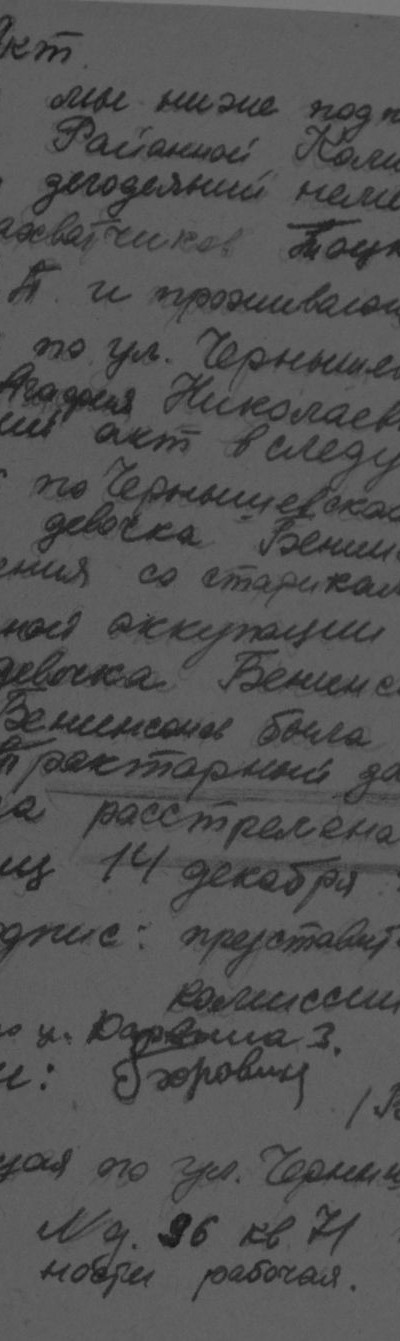 Акт
мы ниже подп
Районной Коми
дегодеяний неме
ахватчиков Троцк
П. и проживающ
по ул. Чернышев
Агафия Николаевн
ий акт в следу
по Чернышевской
девочка Бенин
ения со стариком
ной аккупации
девочка Бенинс
Бенинсонов была
Трактарный за
на расстреляна
иц 14 декабря
одпис: представит
комиссии
по ул. 3.
и:
щая по ул. Черныш
№ д. 96 кв 71
ности рабочая.